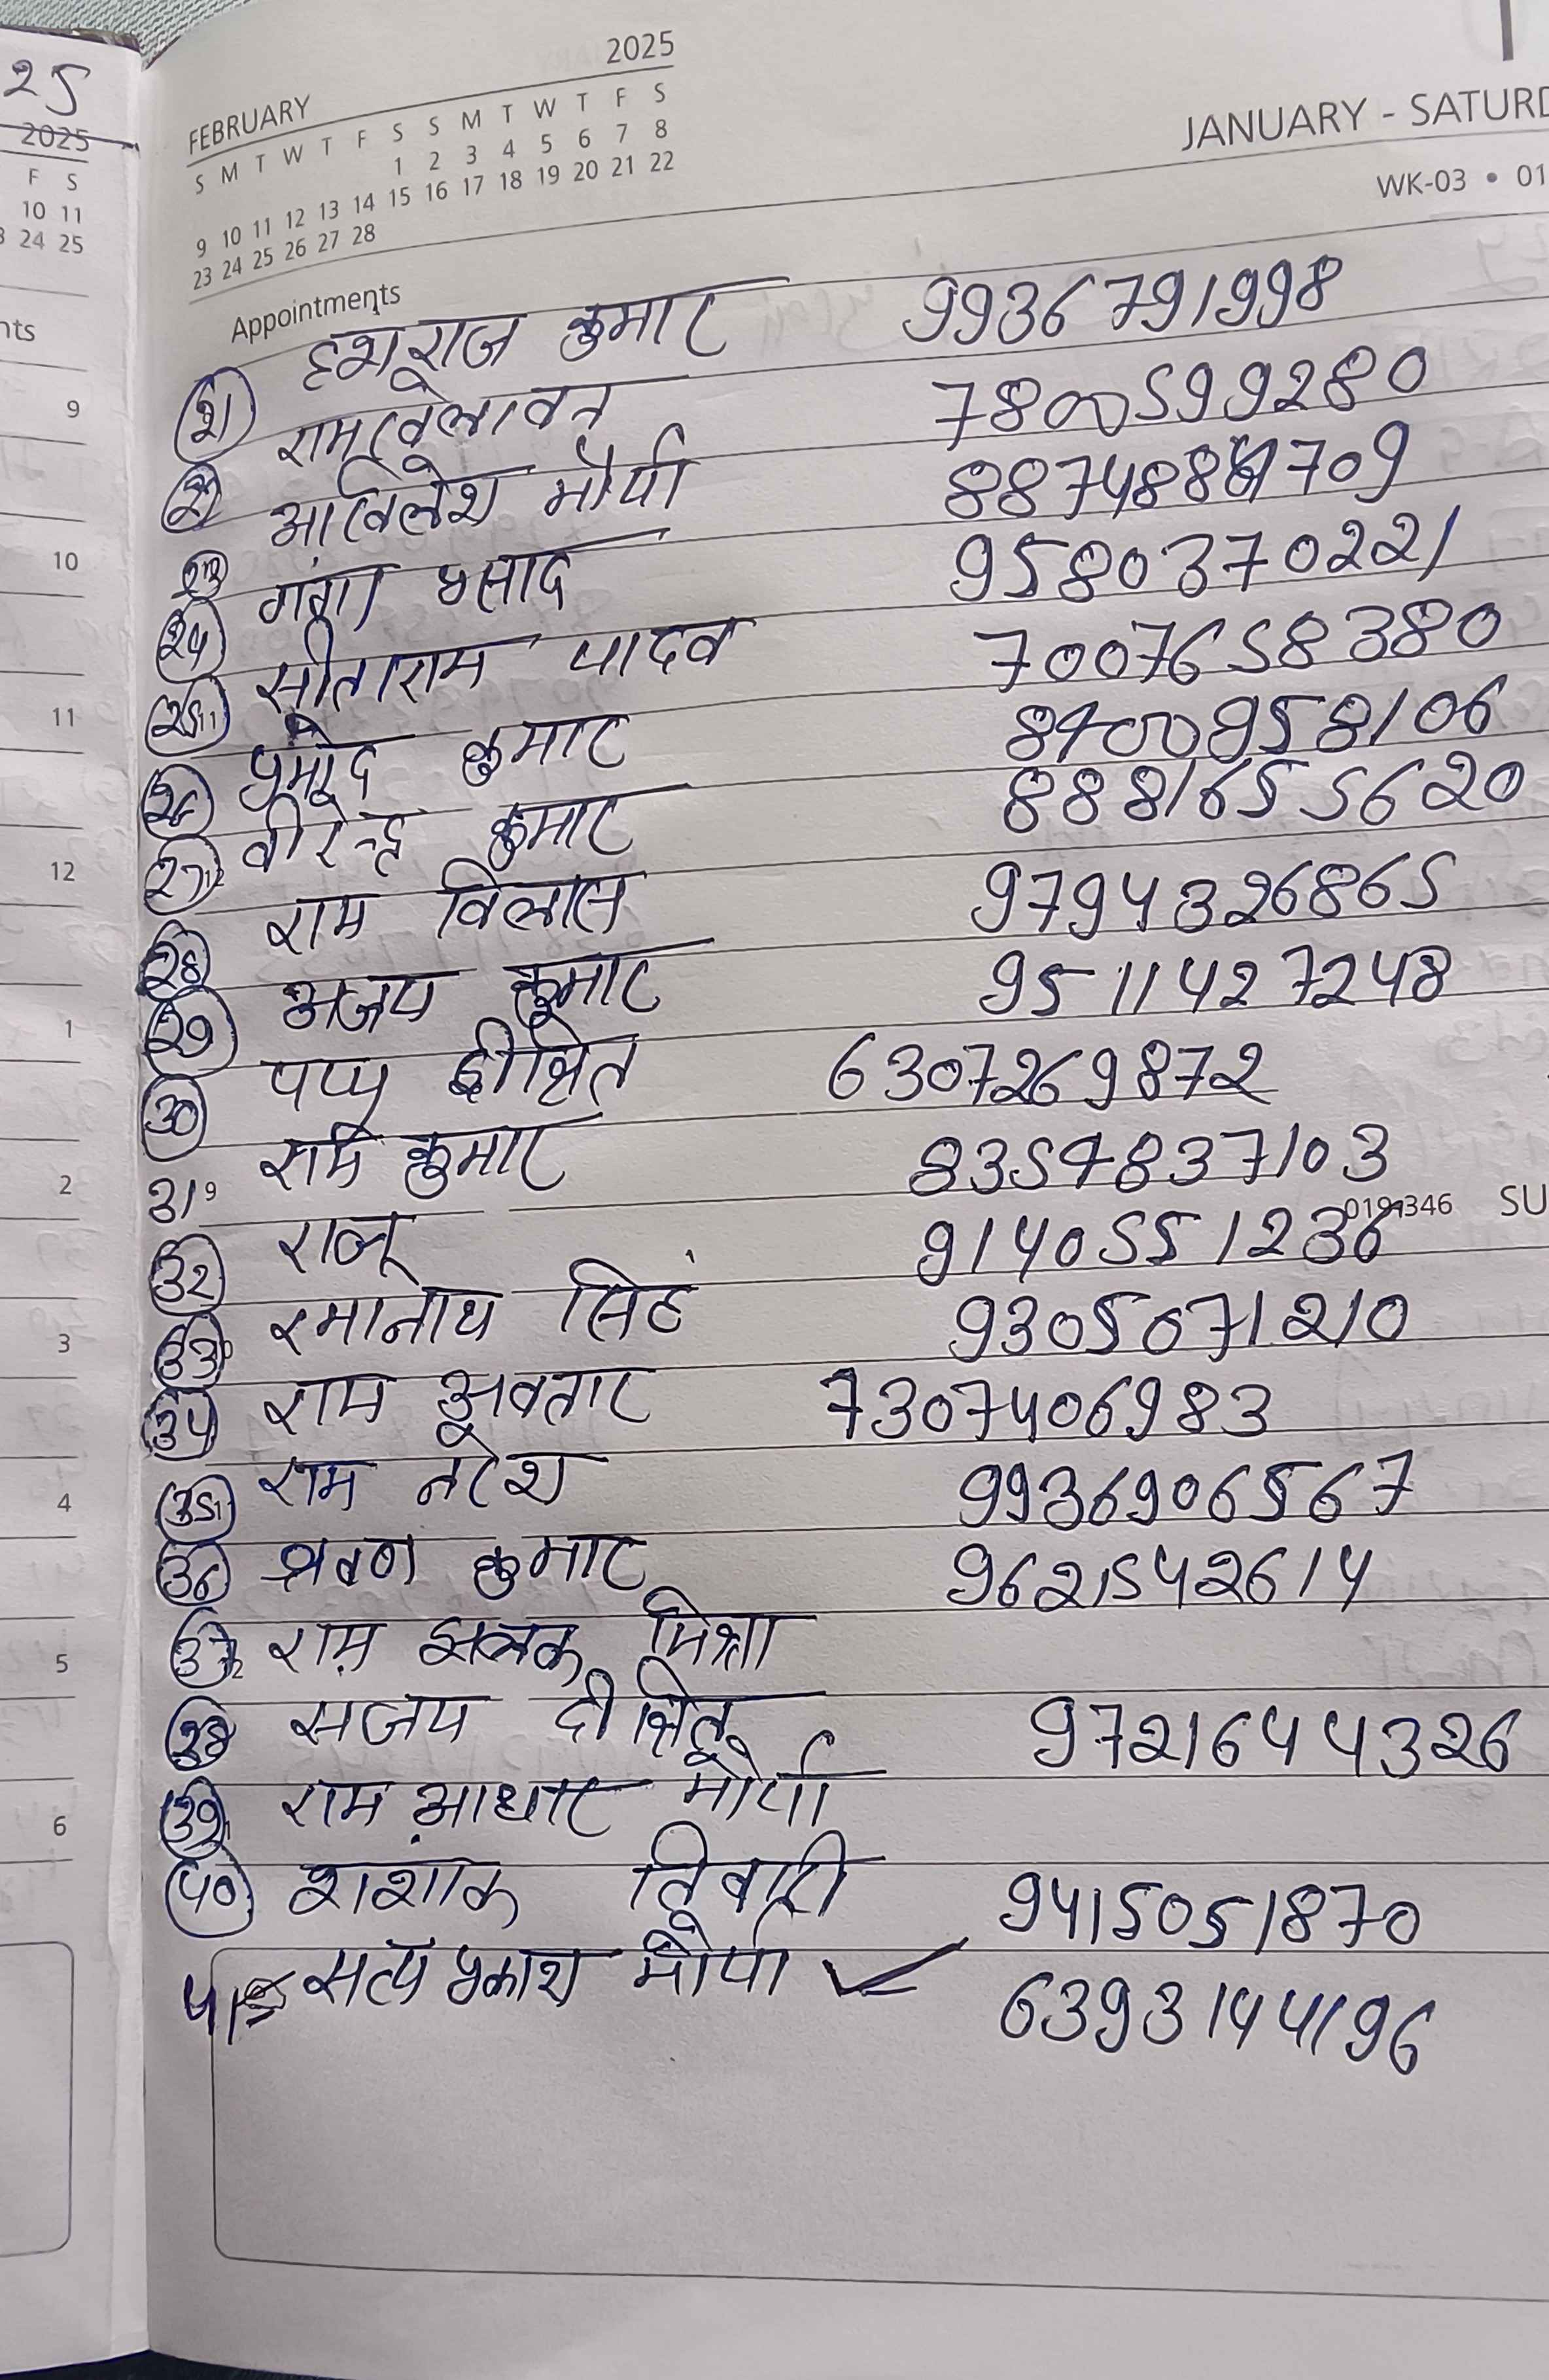 25
2025
F S
10 11
24 25
nts
9
10
11
12
1
2
3
4
5
6
2025
FEBRUARY
S M T W T F S S M T W T F S
1 2 3 4 5 6 7 8
9 10 11 12 13 14 15 16 17 18 19 20 21 22
23 24 25 26 27 28
JANUARY - SATURD
WK-03 • 01
Appointments
21 हंशराज कुमार 9936791998
22 रामखेलावन 7800599280
23 अखिलेश मौर्या
24 गंगा प्रसाद 9580370221
25 सीताराम यादव 7007658380
26 प्रमोद कुमार
27 वीरेन्द्र कुमार
28 राम विलास 9794326865
29 अजय कुमार
30 पप्पू दीक्षित 6307269872
31 राम कुमार 8354837103
019-346 SU
32 राजू 9140551236
33 रमानाथ सिंह 9305671210
34 राम अवतार 7307406983
35 राम नरेश 9936906567
36 श्रवण कुमार 9621542614
37 राम झलक मिश्रा
38 सजय दीक्षित 9721644326
39 राम आधार मौर्या
40 शशांक तिवारी 9415051870
41 सत्य प्रकाश मौर्या ✓ 6393144196